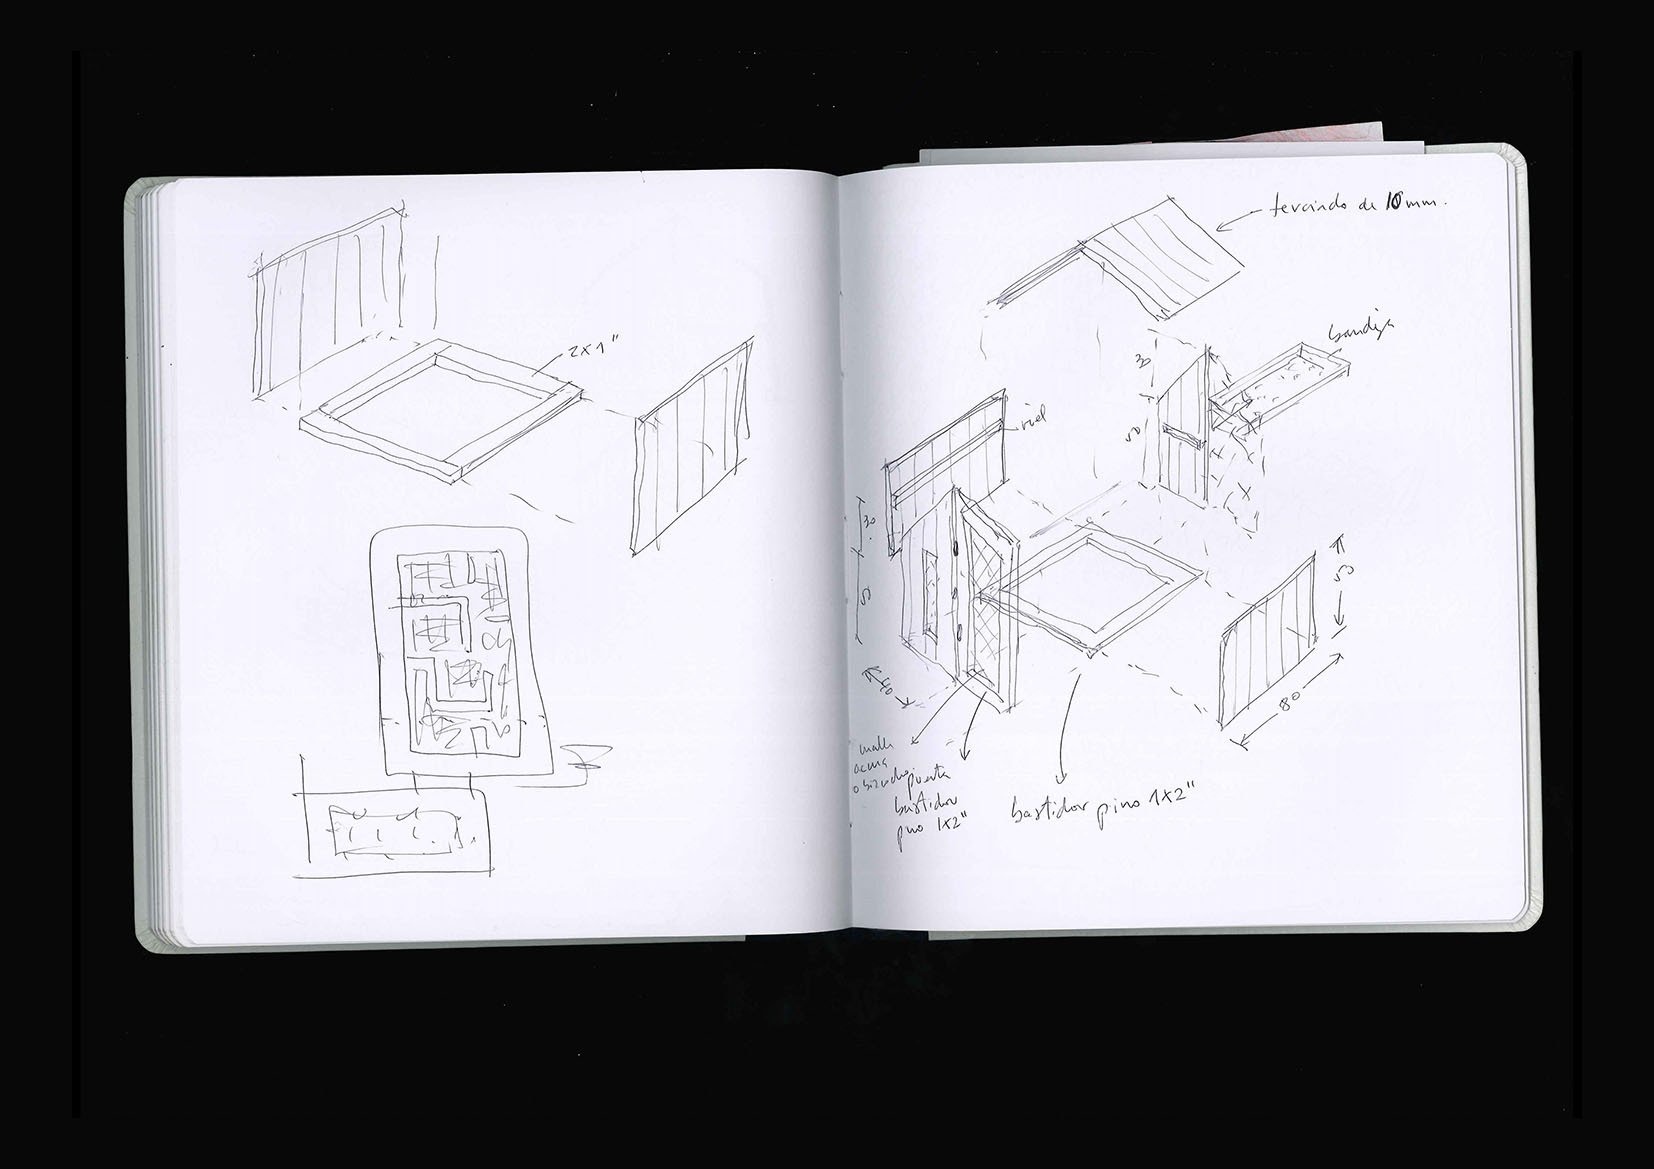 2x1"
terciado de 10mm.
bandeja
30
50
riel
30
50
50
40
80
malla
acma
o bizcocho.
puerta
bastidor
pino 1x2"
bastidor pino 1x2"